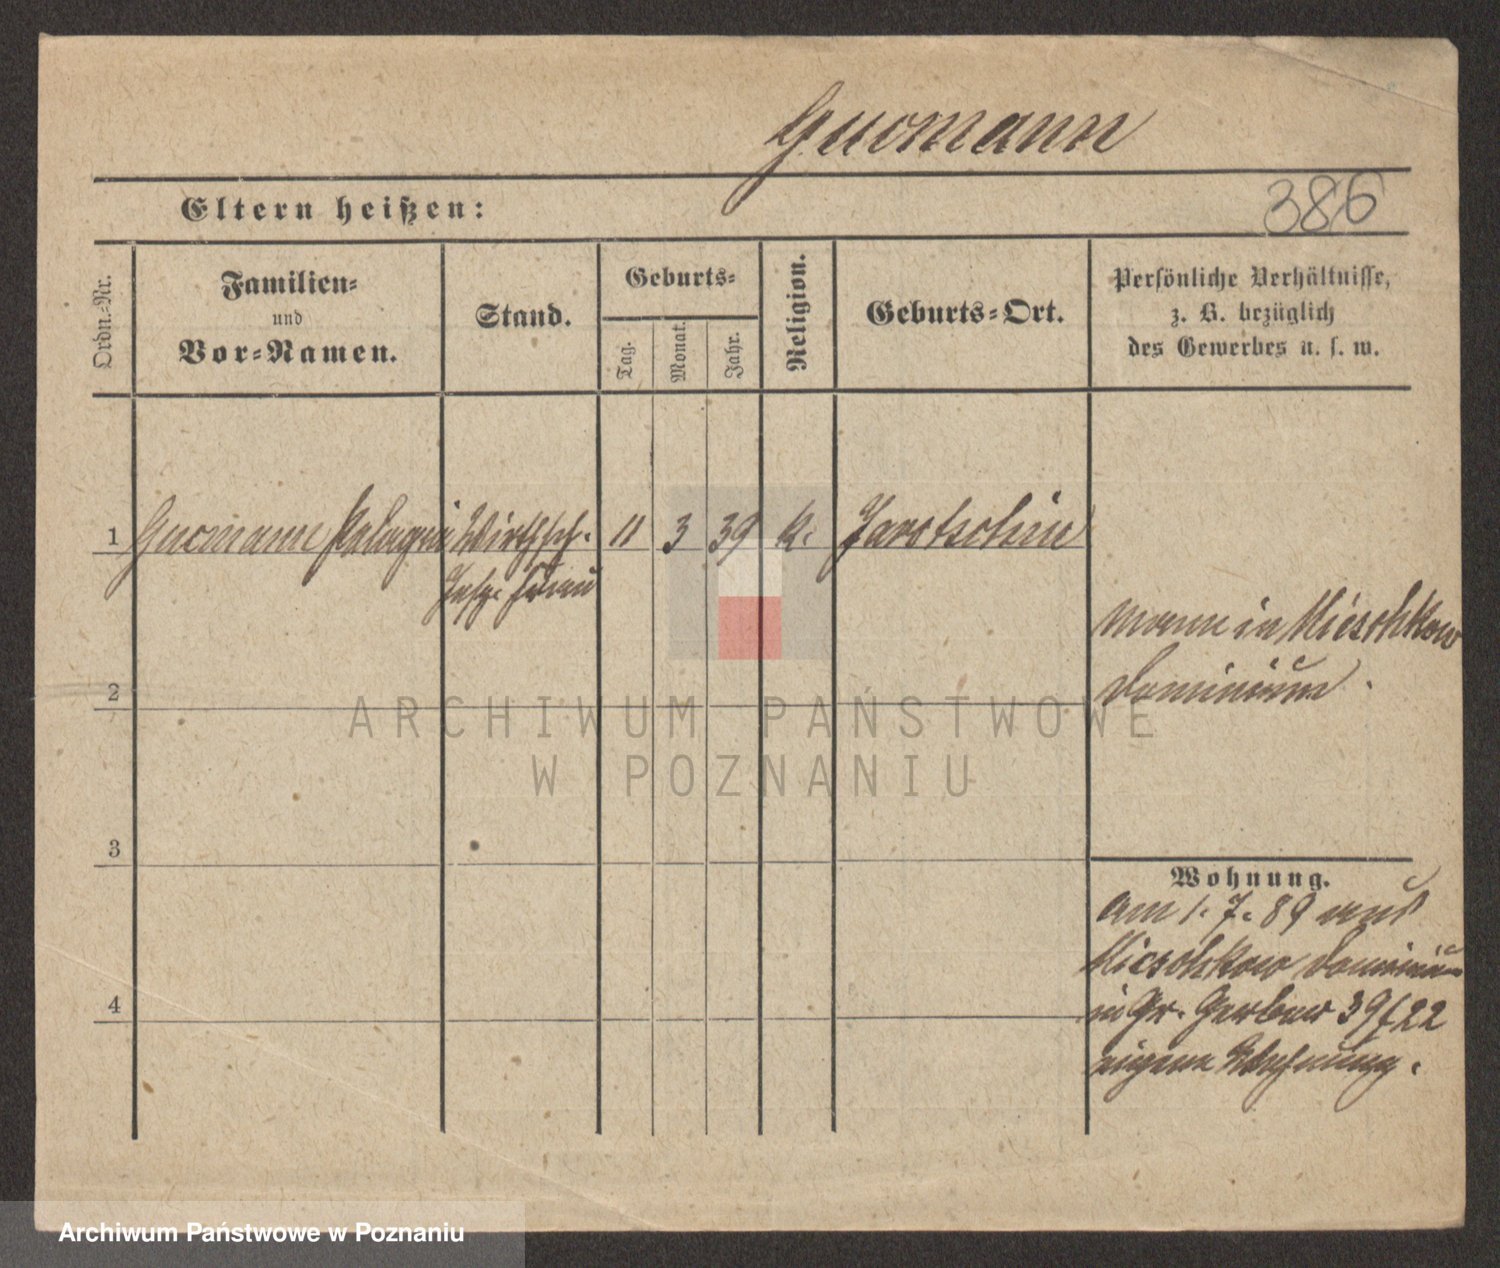 Gucmann
386
Eltern heißen:
Ordn.-Nr.
Familien-
und
Vor-Namen.
Stand.
Geburts-
Tag.
Monat.
Jahr.
Religion.
Geburts-Ort.
Persönliche Verhältnisse,
z. B. bezüglich
des Gewerbes u. s. w.
1 Gucmann Pelagia Wirthsch. 11 3 39 k. Jarotschin
Insp. Frau
Mann in Mieschkow
Dominium.
2
3
4
Wohnung.
am 1. 7. 89 aus
Mieschkow Dominium
in Gr. Gerber 39/22
eigene Wohnung.
ARCHIWUM PAŃSTWOWE
W POZNANIU
Archiwum Państwowe w Poznaniu